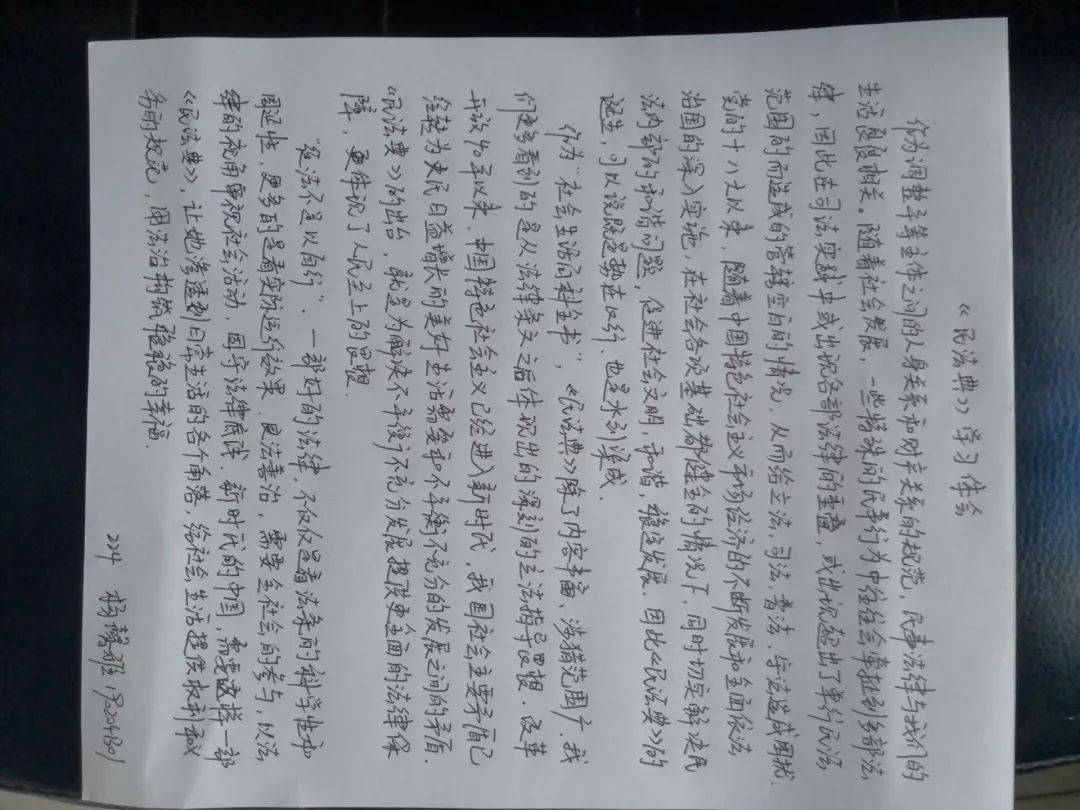 《民法典》学习体会
作为调整平等主体之间的人身关系和财产关系的规范，民事法律与我们的
生活息息相关。随着社会发展，一些特殊的民事行为中往往会牵扯到多部法
律，因此在司法实践中或出现各部法律间的重叠，或出现超出了单行民法
范围的而造成的管辖空白的情况，从而给立法，司法，普法，守法造成困扰.
党的十八大以来，随着中国特色社会主义市场经济的不断发展和全面依法
治国的深入实施，在社会各项基础都健全的情况下，同时切实解决民
法内部的和谐问题，促进社会文明，和谐，稳定发展。因此《民法典》的
诞生，可以说既是势在必行，也是水到渠成.
作为“社会生活百科全书”，《民法典》除了内容丰富、涉猎范围广，我
们更多看到的是从法律条文之后体现出的深刻的立法指导思想．改革
开放40年以来，中国特色社会主义已经进入新时代，我国社会主要矛盾已
经转为人民日益增长的美好生活需要和不平衡不充分的发展之间的矛盾.
《民法典》的出台，就是为解决不平衡，不充分发展提供更全面的法律保
障，更体现了人民至上的思想.
“徒法不足以自行”．一部好的法律，不仅仅是看法条的科学性和
周延性，更多的是看实际运行效果．良法善治，需要全社会的参与，以法
律的视角审视社会活动，固守法律底线．新时代的中国，需要这样一部
《民法典》，让她渗透到日常生活的各个角落，给社会生活提供权利和义
务的规范，用法治构筑稳稳的幸福.
224 杨馨雅